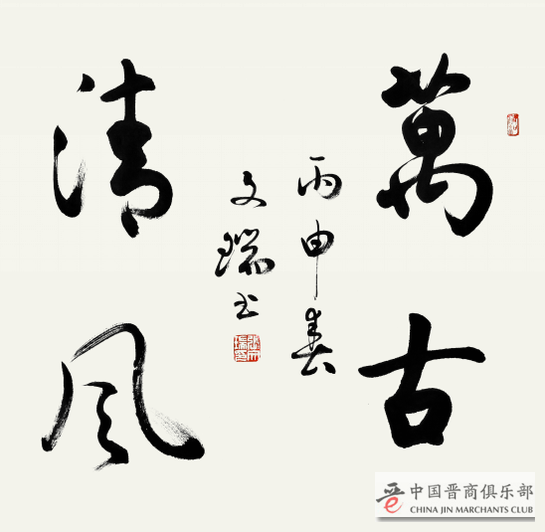 萬古
清風
丙申春
文瑞书
中国晋商俱乐部
CHINA JIN MARCHANTS CLUB